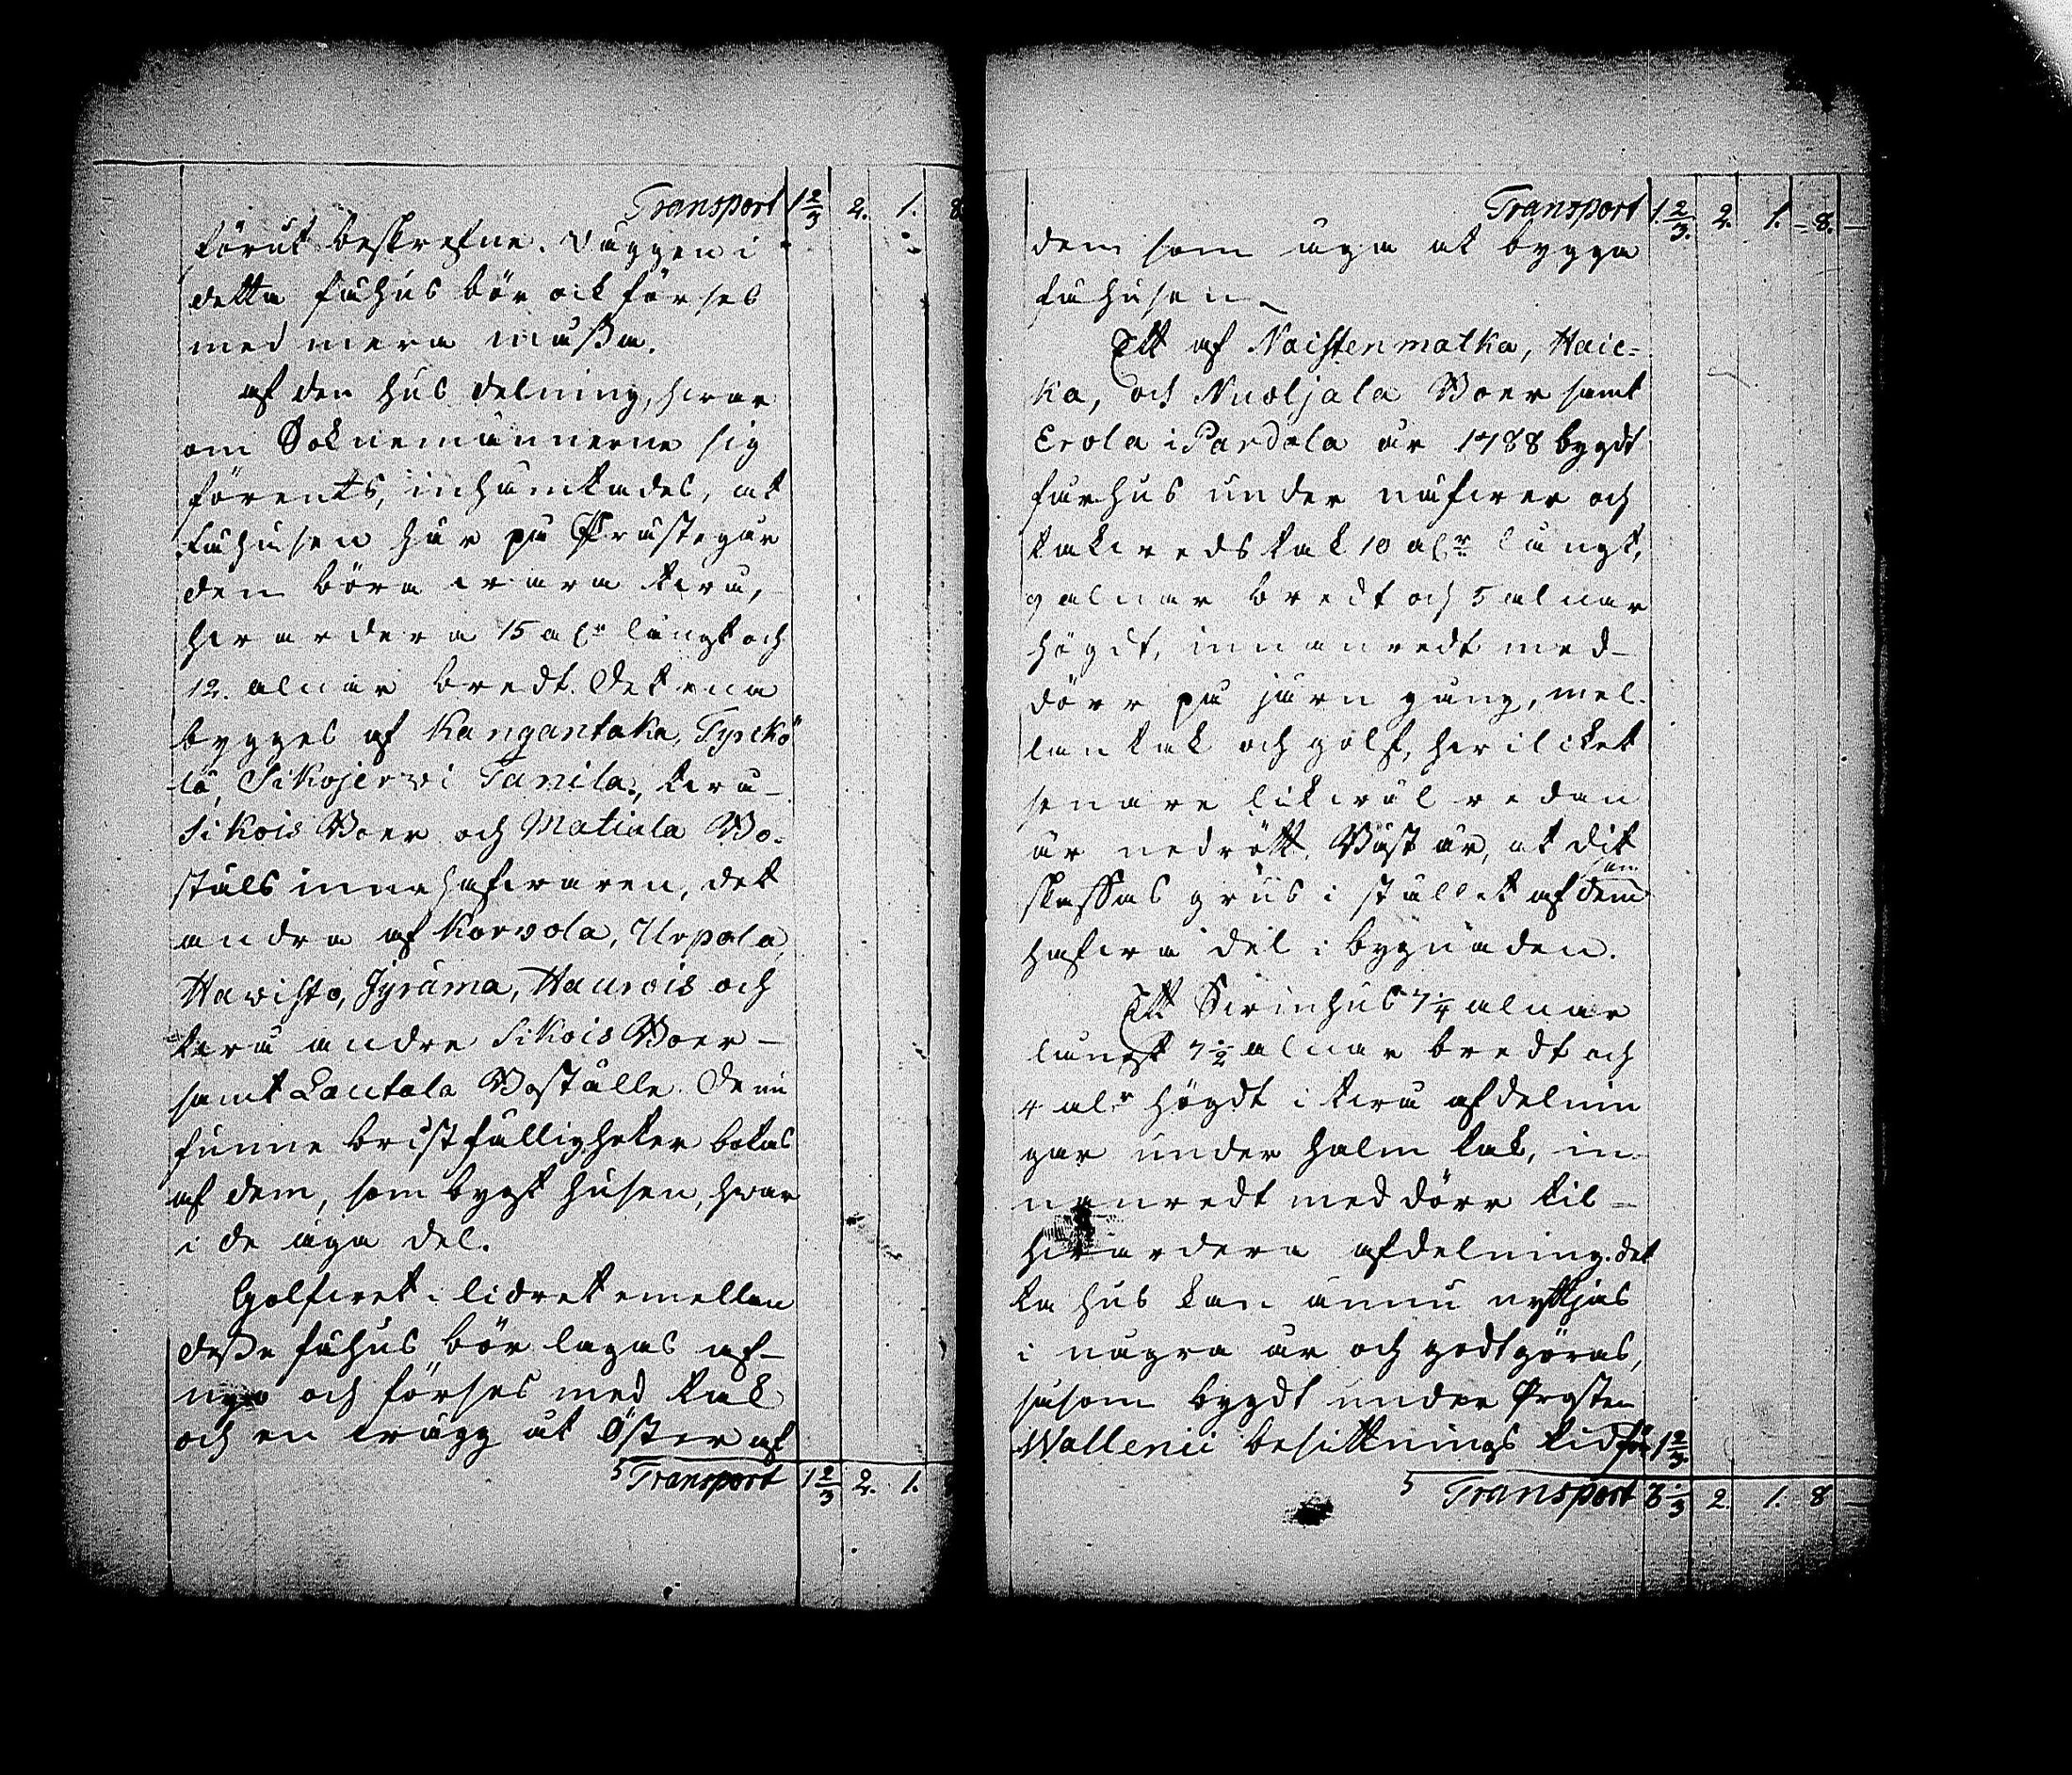 Transport 1 2/3 2. 1. 8
förut beskrefne. Väggen i
detta fähus bör ock förses
med mera måssa.
af den hus delning, hwar
om Soknemännerne sig
förents, inhämtades, at
fähusen här på Prästegår
den böra wara twå,
hwardera 15 al:r långt och
12. alnar bredt. Det ena
bygges af Kangantaka, Tyrckö
lä, Sikojerwi Tanila, twå
Sikois Boer och Matiala Bo-
ställs innehafwaren, det
andra af Korvola, Urpola,
Hawisto, Jyräma, Haurois och
twå andre Sikois Boer
samt Lautala Boställe. De nu
funne bristfälligheter botas
af dem, som bygt husen, hwar
i de äga del.
Golfwet i lidret emellan
desse fähus bör lagas af
nyo och förses med tak
och en wägg åt Öster af
Transport 1 2/3 2. 1.
Transport 1 2/3. 2. 1. 8.
dem som äga at bygga
fähusen.
Ett af Naistenmatka, Haic-
ka, och Nuoljala Boer samt
Erola i Pardala år 1788 bygdt
fårhus under näfwer och
takwedstak 10 al:r långt,
9 alnar bredt och 5 alnar
högdt, innanredt med
dörr på järn gång, mel-
lantak och golf, hwilcket
senare likwäl redan
är nedrött. Bäst är, at dit
skaffas grus i stället af dem
som
hafwa del i bygnaden.
Ett Swinhus 7 1/4 alnar
långt 7 1/2 alnar bredt och
4 al:r högdt i twå afdelnin
gar under halm tak, in-
nanredt med dörr til
hwardera afdelning. Det
ta hus kan ännu nyttjas
i några år och godtgöras,
såsom bygdt under Prosten
Wallenii besittnings tid för 1 2/3.
Transport 3 1/3 2. 1. 8